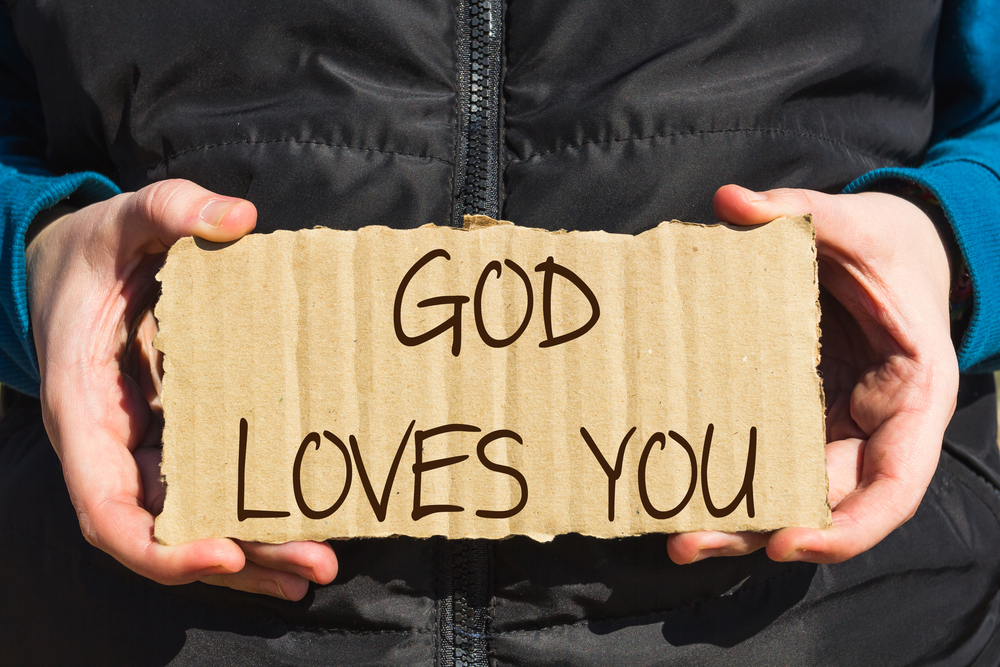 GOD
LOVES YOU